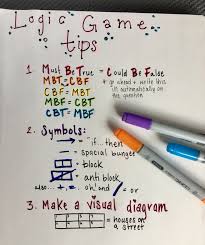 Logic Game
tips
1. Must Be True = Could Be False
MBT = CBF
CBF = MBT
MBF = CBT
CBT = MBF
→ go ahead + write this
automatically on
the question
2. Symbols:
→ = if... then
= spacial bunger
= block
= anti block
also... +, -, oh, and / = or
3. Make a visual diagram
= houses on
a street